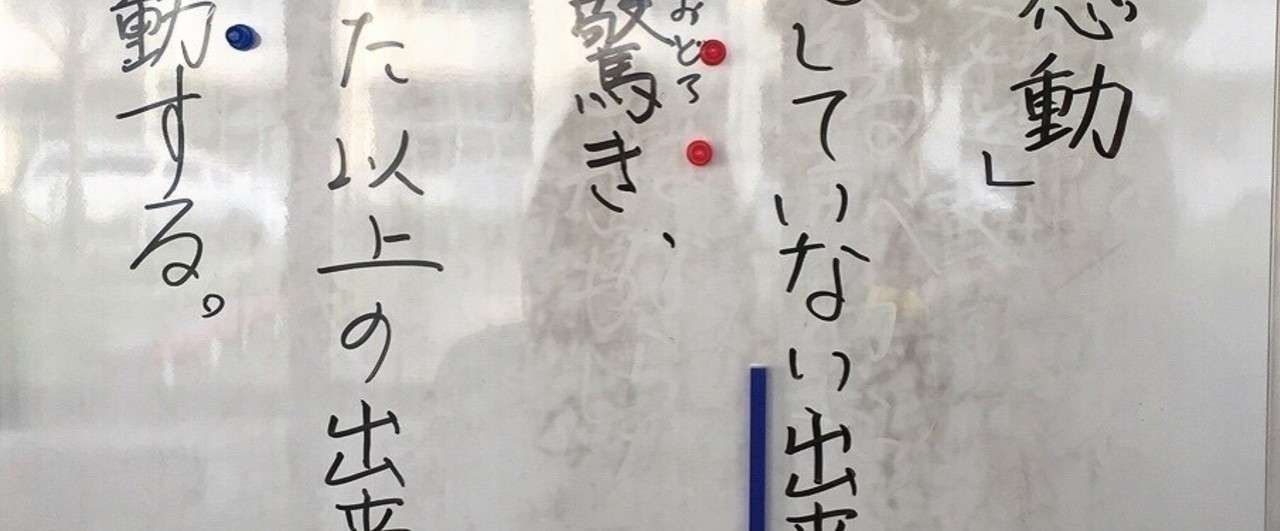 感動」
していない出来
驚き、
おどろ
た以上の出来
動する。